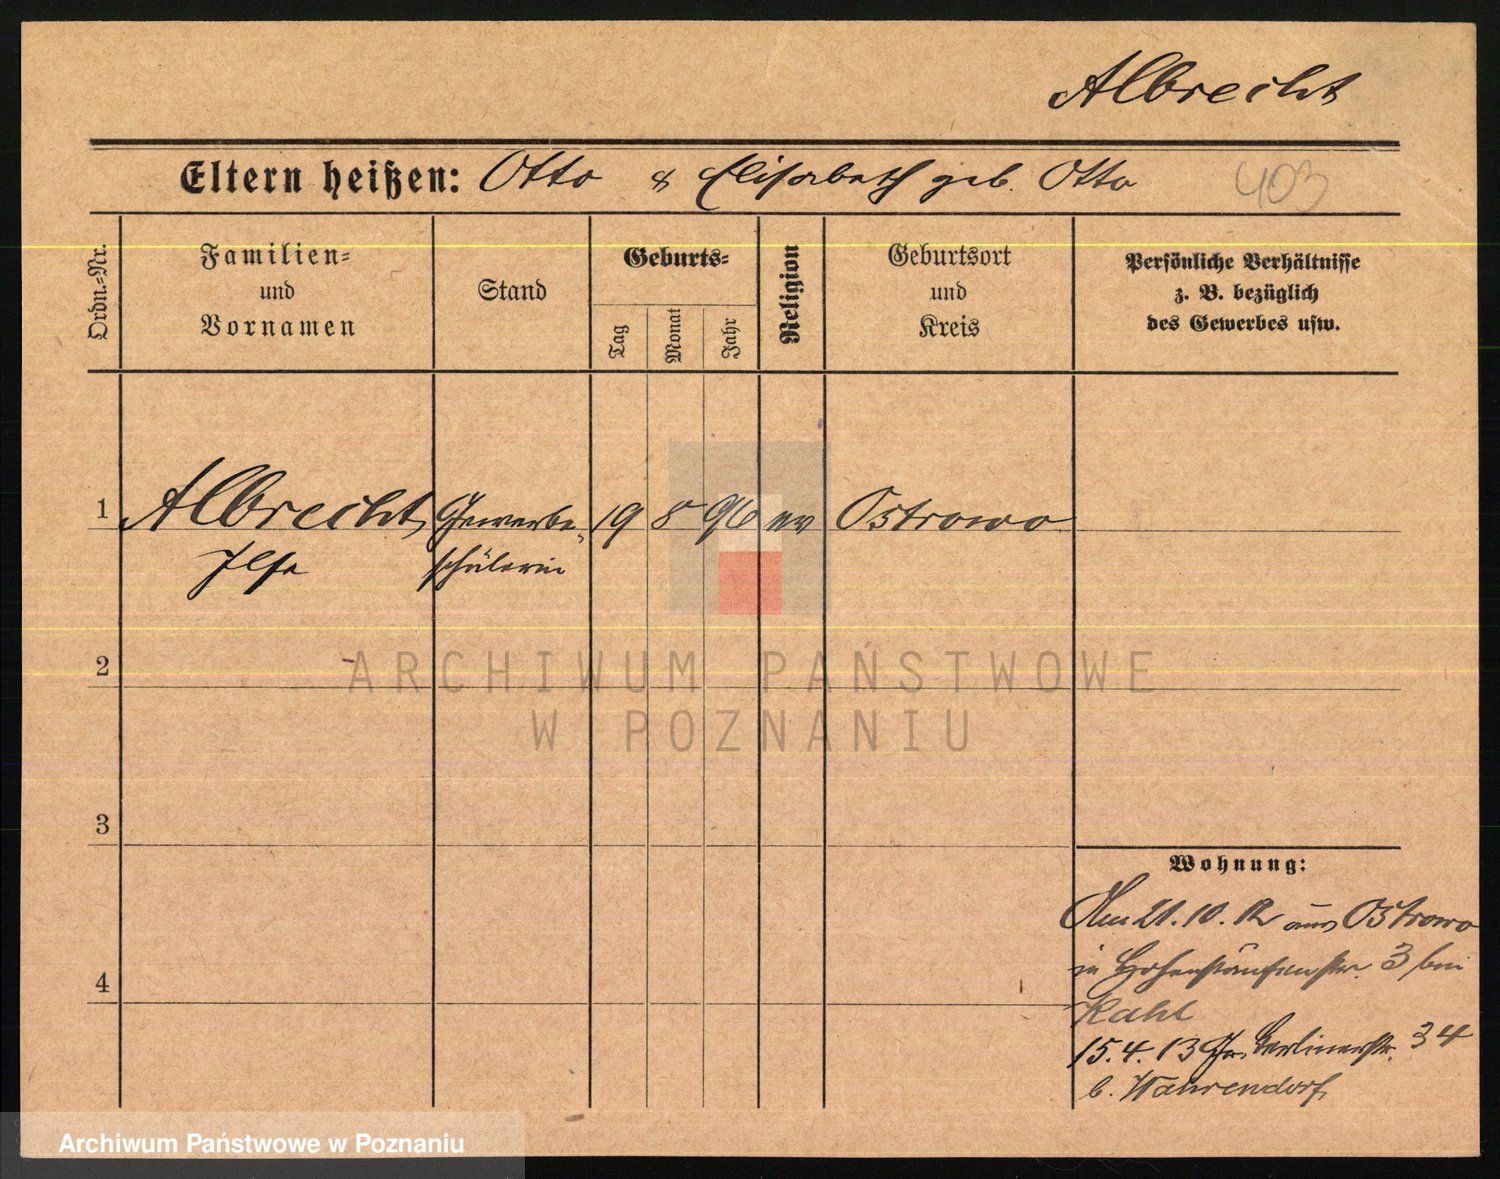 Albrecht
Eltern heißen: Otto & Elisabeth geb. Otto
403
Ordn.-Nr.
Familien-
und
Vornamen
Stand
Geburts-
Tag
Monat
Jahr
Religion
Geburtsort
und
Kreis
Persönliche Verhältnisse
z. B. bezüglich
des Gewerbes usw.
1 Albrecht Gewerbe- 19 8 96 ev Ostrowo
Ilse schülerin
2
ARCHIWUM PAŃSTWOWE
W POZNANIU
3
Wohnung:
Am 21.10.12 aus Ostrowo
in Hohenstaufenstr. 3 bei
4
Kahl
15.4.13 Berlinerstr. 34
b. Wahrendorf
Archiwum Państwowe w Poznaniu